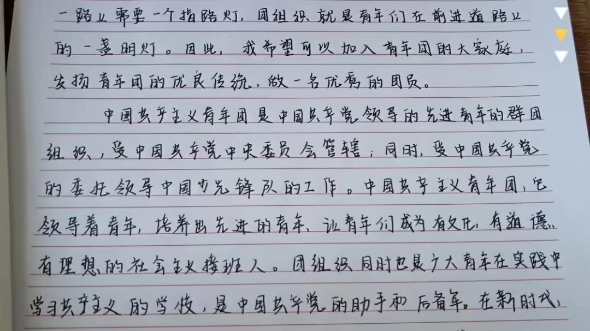 一路上需要一个指路灯，团组织就是青年们在前进道路上
的一盏明灯。因此，我希望可以加入青年团的大家庭，
发扬青年团的优良传统，做一名优秀的团员。
中国共产主义青年团是中国共产党领导的先进青年的群团
组织，受中国共产党中央委员会管辖；同时，受中国共产党
的委托领导中国少先锋队的工作。中国共产主义青年团，它
领导着青年，培养出先进的青年，让青年们成为有文化，有道德，
有理想的社会主义接班人。团组织同时也是广大青年在实践中
学习共产主义的学校，是中国共产党的助手和后备军。在新时代，